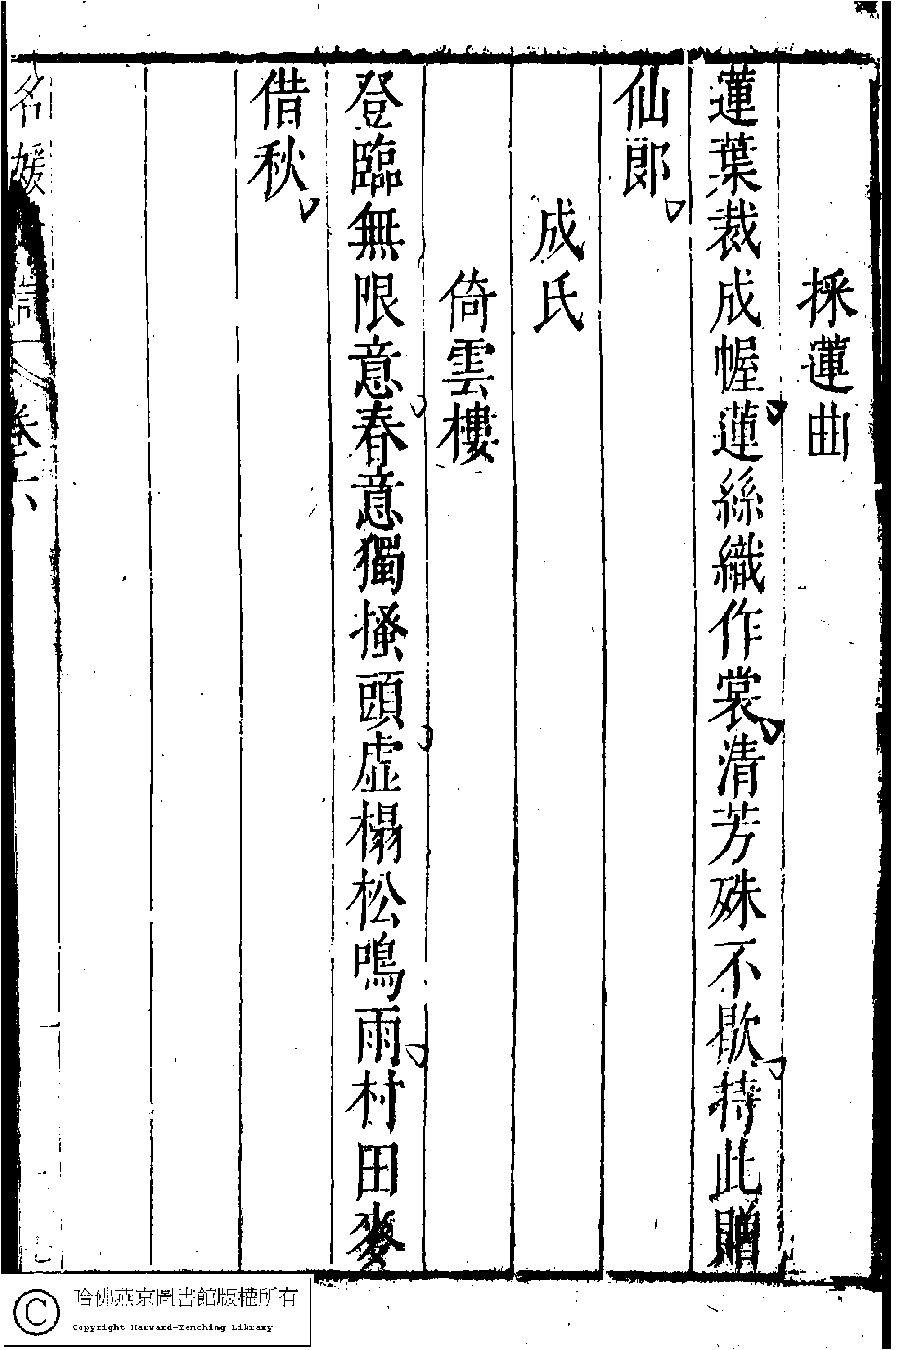 採蓮曲
蓮葉裁成幄蓮絲織作裳清芳殊不歇持此贈
仙郎
成氏
倚雲樓
登臨無限意春意獨搔頭虛榻松鳴雨村田麥
借秋
名媛詩
卷六
哈佛燕京圖書館版權所有
Copyright Harvard-Yenching Library